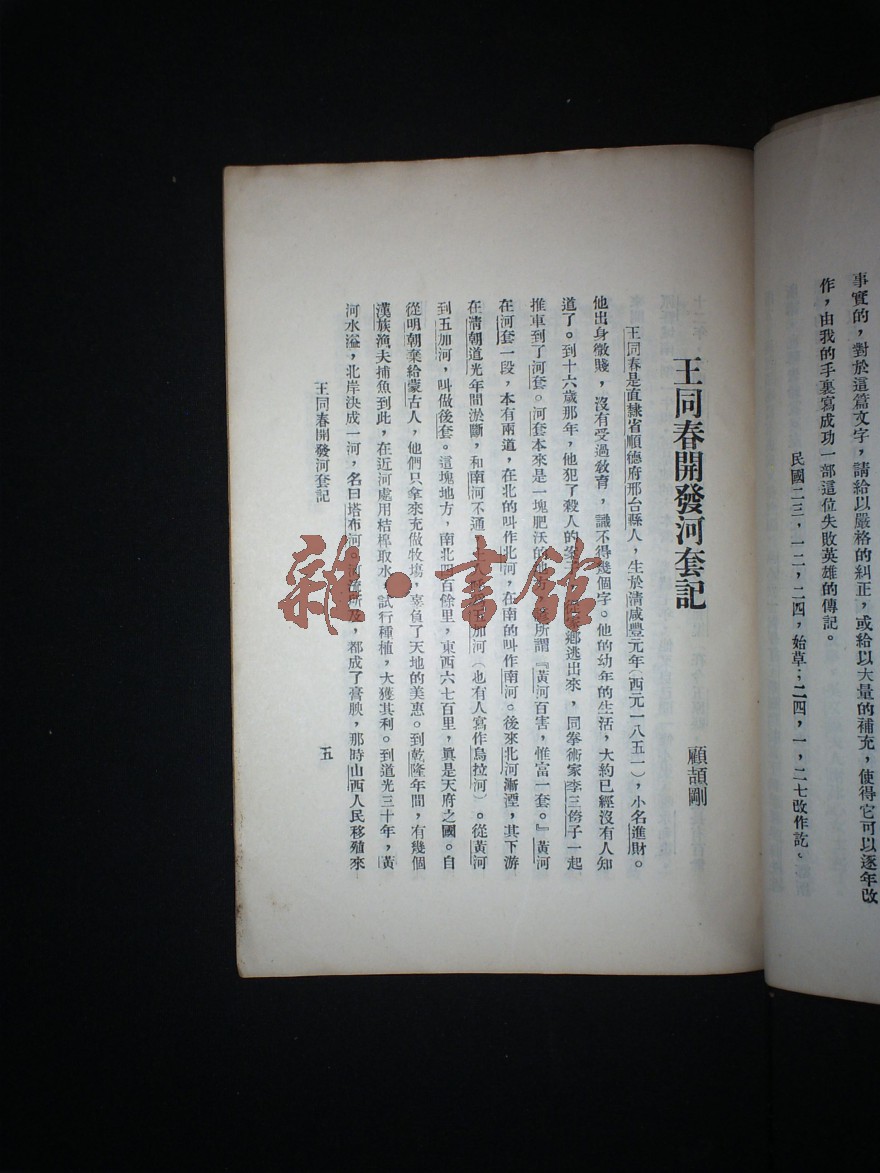 事實的，對於這篇文字，請給以嚴格的糾正，或給以大量的補充，使得它可以逐年改
作，由我的手裏寫成功一部這位失敗英雄的傳記。
民國二三，一二，二四，始草；二四，一，二七改作訖、
王同春開發河套記
顧頡剛
王同春是直隸省順德府邢台縣人，生於清咸豐元年（西元一八五一），小名進財。
他出身微賤，沒有受過敎育，識不得幾個字。他的幼年的生活，大約已經沒有人知
道了。到十六歲那年，他犯了殺人的鄉逃出來，同拳術家李三侉子一起
推車到了河套。河套本來是一塊肥沃的所謂『黃河百害，惟富一套。』黃河
在河套一段，本有兩道，在北的叫作北河，在南的叫作南河。後來北河漸湮，其下游
在清朝道光年間淤斷，和南河不通，加河（也有人寫作烏拉河）。從黃河
到五加河，叫做後套。這塊地方，南北四百餘里，東西六七百里，眞是天府之國。自
從明朝棄給蒙古人，他們只拿來充做牧塲，辜負了天地的美惠。到乾隆年間，有幾個
漢族漁夫捕魚到此，在近河處用桔槹取水，試行種植，大獲其利。到道光三十年，黃
河水溢，北岸決成一河，名曰塔布河。所及，都成了膏腴，那時山西人民移殖來
王同春開發河套記
五
雜·書館